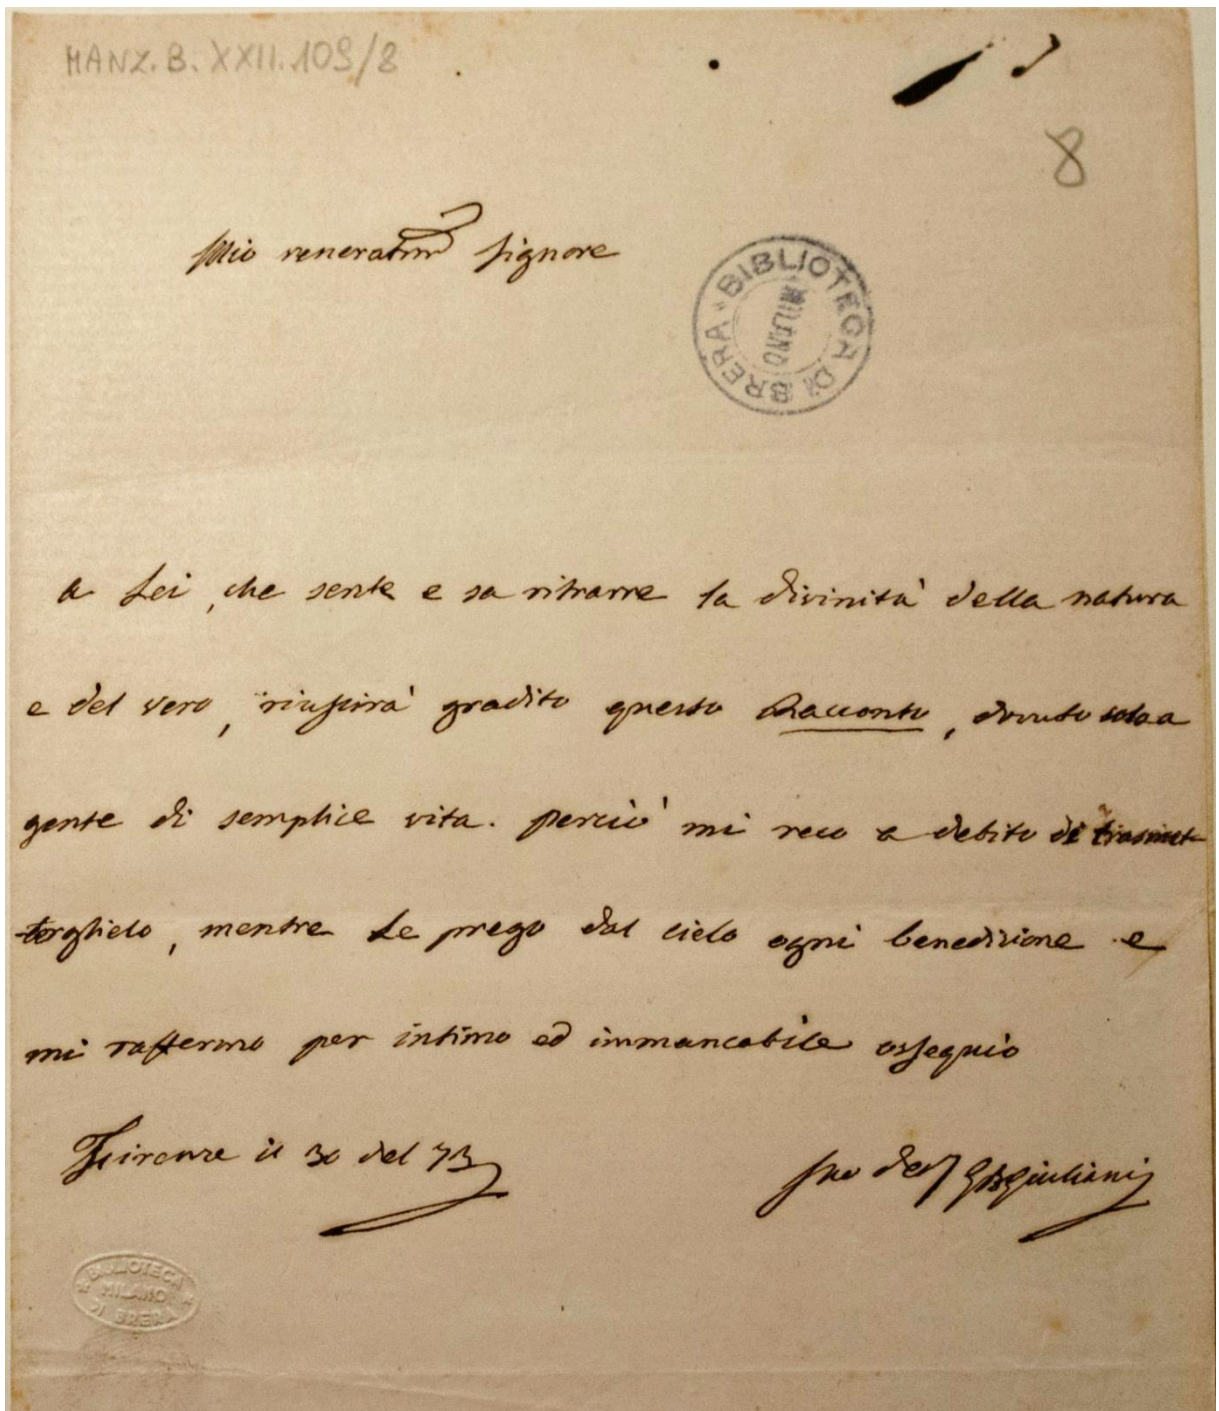 MANZ. B. XXII. 109/8
8
Mio veneratm Signore
BIBLIOTECA DI BRERA
MILANO
a Lei, che sente e sa ritrarre la divinità della natura
e del vero, riuscirà gradito questo Racconto, dovuto solo a
gente di semplice vita. perciò mi reco a debito di trasmet-
terglielo, mentre Le prego dal cielo ogni benedizione e
mi raffermo per intimo ed immancabile ossequio
Firenze il 30 del 73
Suo dev GBGiuliani
BIBLIOTECA
MILANO
DI BRERA